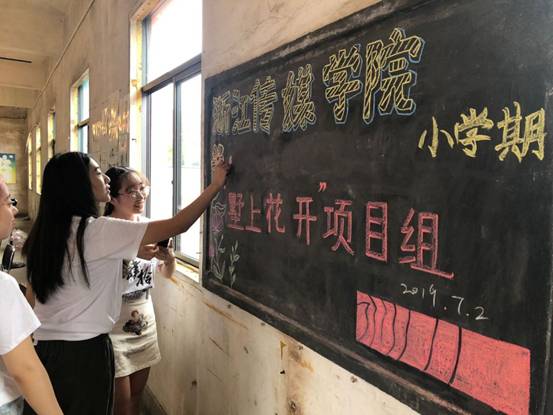 浙江传媒学院
小学期
"墅上花开"项目组
2019.7.2